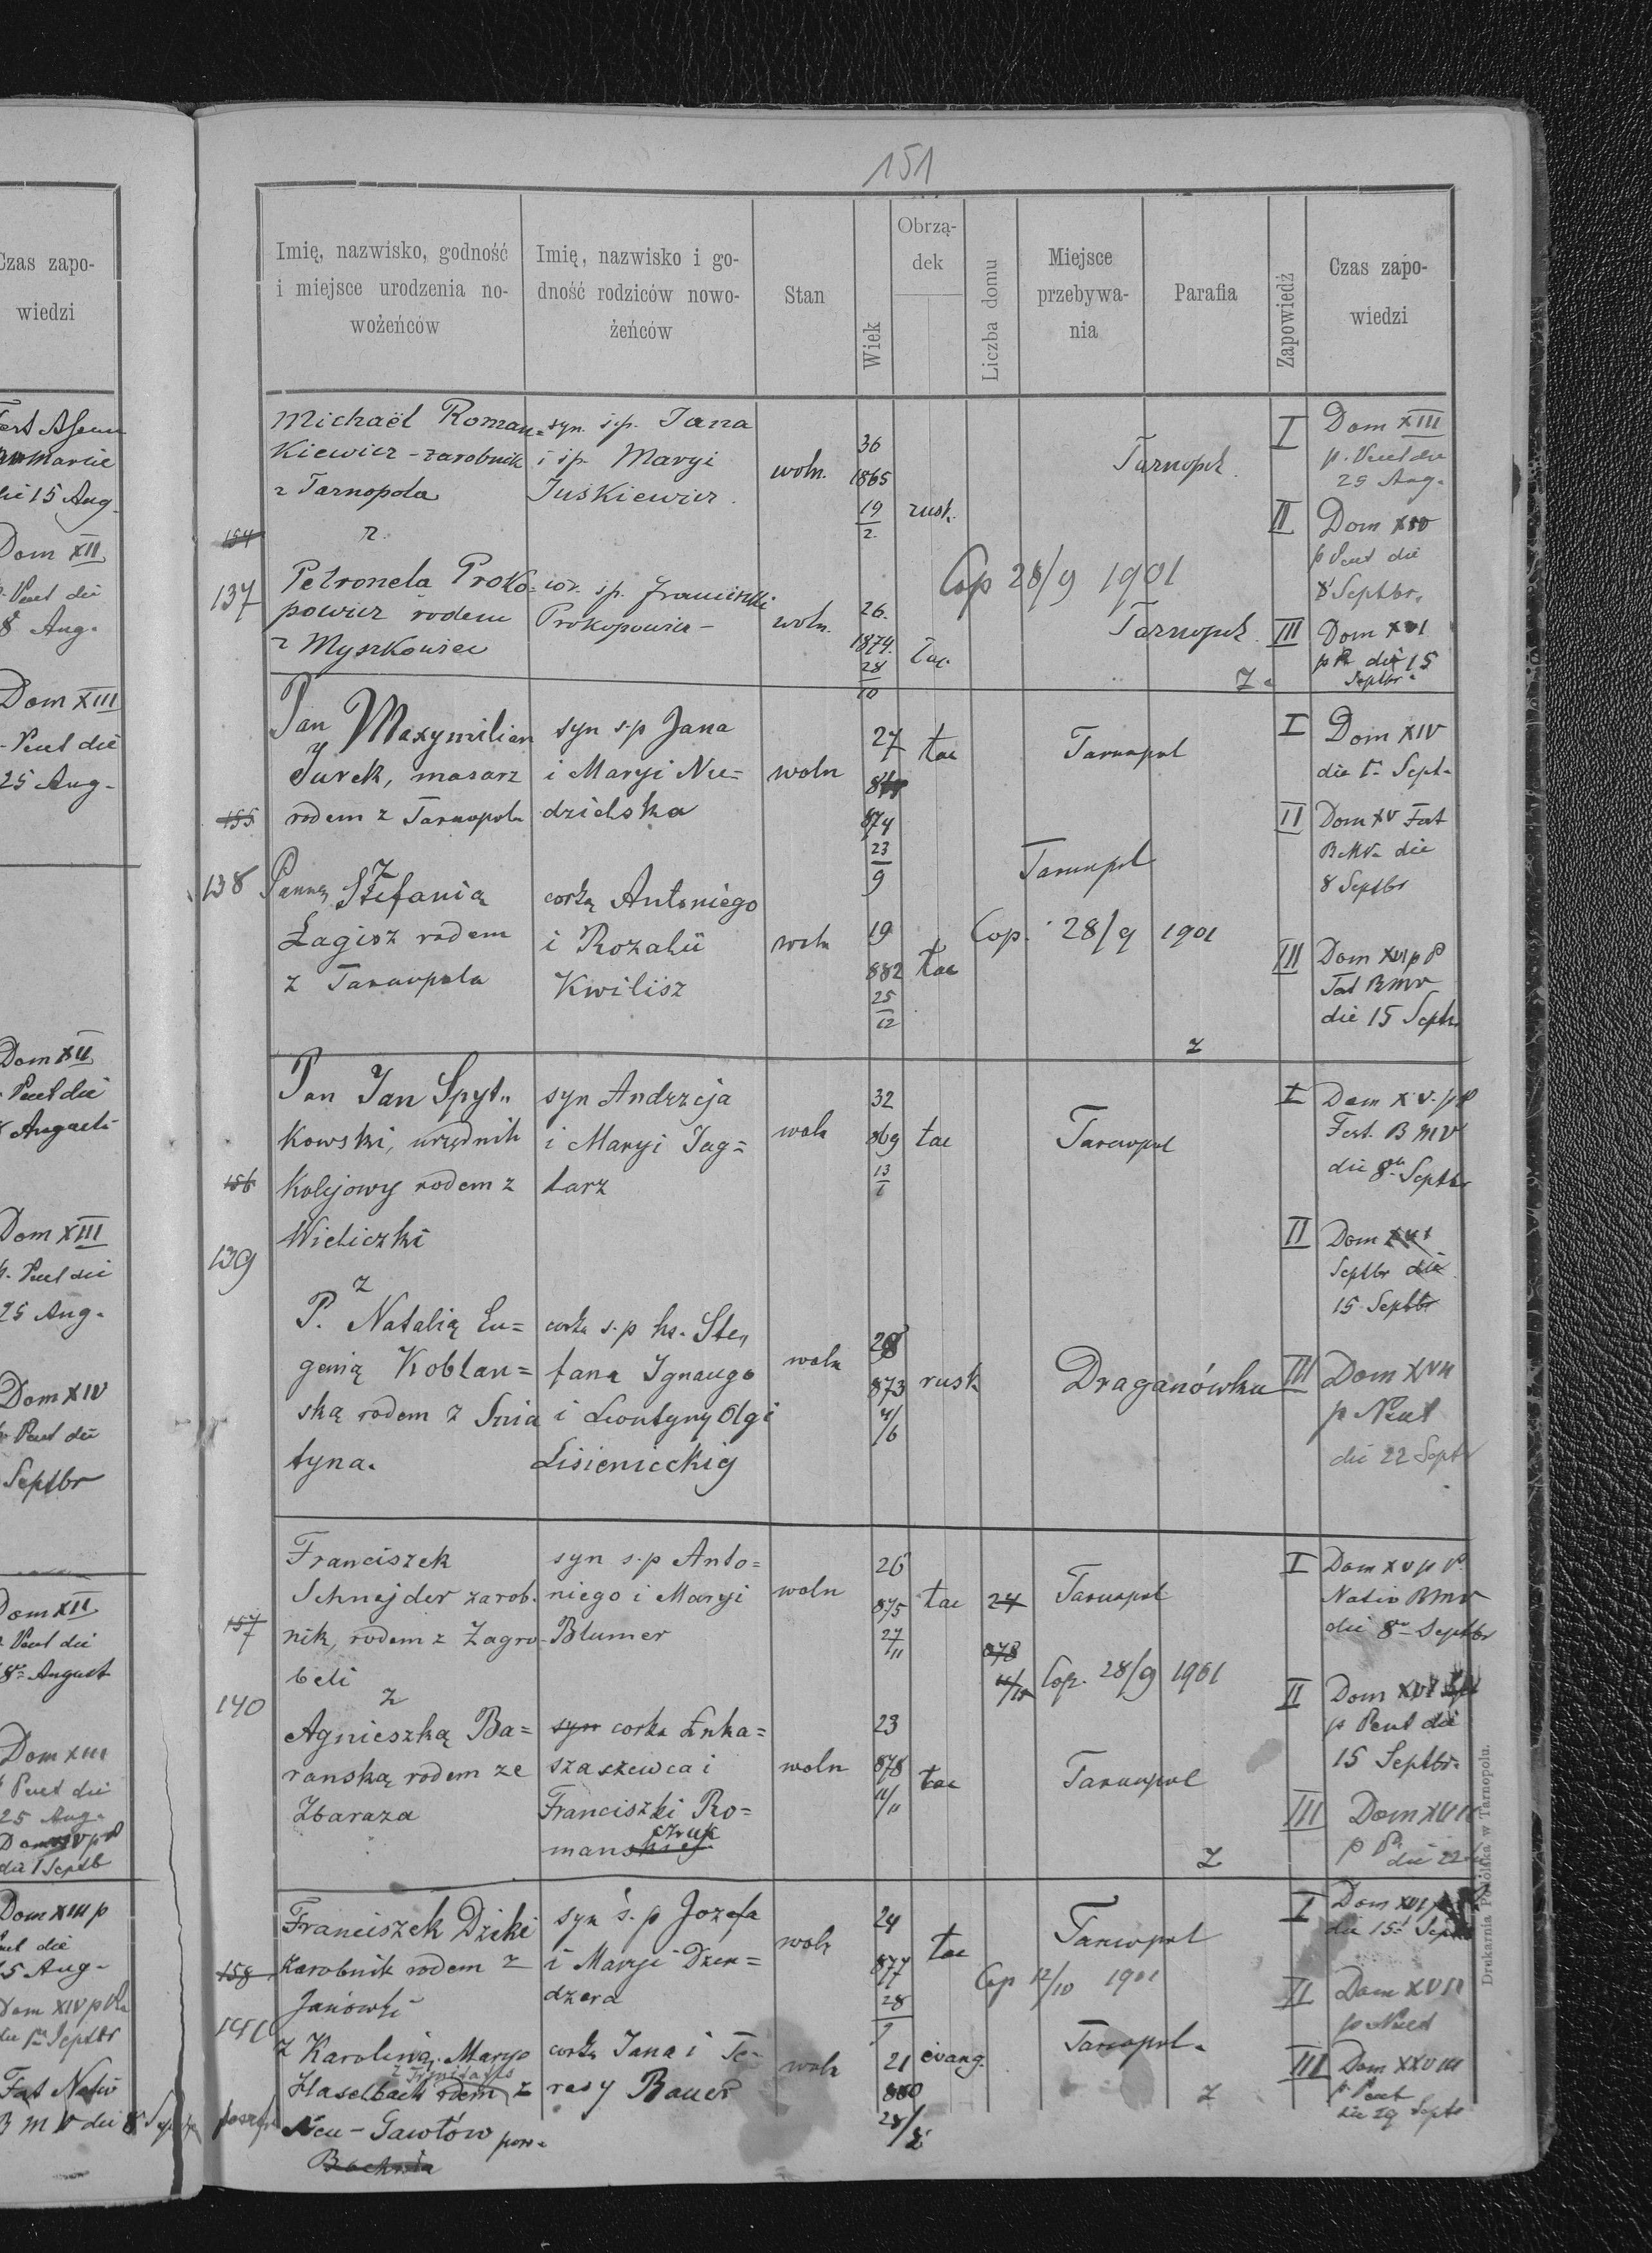 151
Czas zapo-
wiedzi
die 15 Aug.
Dom XII
p. Pent die
8 Aug.
Dom XIII
p. Pent die
25 Aug.
Dom XII
p. Pent die
Augusti
Dom XIII
p. Pent die
25 Aug.
Dom XIV
p Pent die
Septbr
Dom XII
p Pent die
18 August
Dom XIII
p Pent die
25 Aug.
die 1 Septb
Dom XIII p
Pent die
25 Aug.
Dom XIV p
die 1 Septbr
Fest Nativ
B M V die 8 Sept
Imię, nazwisko, godność
i miejsce urodzenia no-
wożeńców
Imię, nazwisko i go-
dność rodziców nowo-
żeńców
Stan
Wiek
Obrzą-
dek
Liczba domu
Miejsce
przebywa-
nia
Parafia
Zapowiedź
Czas zapo-
wiedzi
154
137
Michaël Roman=
kiewicz - zarobnik
z Tarnopola
z
Petronela Proko-
powicz rodem
z Myszkowiec
syn ś.p. Jana
i śp. Maryi
Juśkiewicz.
cór. śp. Franciszki
Prokopowicz -
woln.
woln.
36
1865
19
2.
26.
1874.
28
10
rusk.
łac.
Tarnopol.
Cop 28/9 1901
Tarnopol.
Z.
I
Dom XIII
p. Pent die
25 Aug.
II
Dom XIV
p Pent die
8 Septbr.
III
Dom XVI
p P. die 15
Septbr.
155
138
Pan Maxymilian
Jurek, masarz
rodem z Tarnopola
z
Panną Stefanią
Łagisz rodem
z Tarnopola
syn ś.p Jana
i Maryi Nie=
dzielska
corką Antoniego
i Rozalii
Kwilisz
woln
woln
27
874
23
9
19
882
25
12
łac
łac
Tarnopol
Tarnopol
Cop. 28/9 1901
z
I
Dom XIV
die 1. Sept.
II
Dom XV Fest
B.M.V. die
8 Septbr
III
Dom XVI p P
Fest BMV
die 15 Septb
156
139
Pan Jan Spyt„
kowski, urzędnik
kolejowy rodem z
Wieliczki
z
P. Natalią Eu=
genią Koblań=
ską rodem z Śnia
tyna.
syn Andrzeja
i Maryi Jag=
larz
corka ś.p ks. Ste„
fana Ignacego
i Leontyny Olgi
Lisienieckiej
woln
woln
32
869
13
1
28
873
4/6
łac
rusk
Tarnopol
Draganówka
I
Dom XV. p P
Fest. B M V
die 8. Septbr
II
Dom XVI
Septbr die
15 Septbr
III
Dom XVII
p Pent
die 22 Septb
157
140
Franciszek
Schnejder zarob.
nik, rodem z Zagro-
beli
z
Agnieszką Ba=
ranską rodem ze
Zbaraza
syn ś.p Anto=
niego i Maryi
Blumer
syn corka Łuka=
sza szewca i
Franciszki Ro=
manskiej
czuk
woln
woln
26
875
27
11
23
878
11/11
łac
łac
24
878
Tarnopol
Cop. 28/9 1901
Tarnopol
Z
I
Dom XV p P.
Nativ BMV
die 8 Septbr
II
Dom XVI
p Pent die
15 Septbr.
III
Dom XVII
p P. die 22
158
141
Franciszek Dziki
zarobnik rodem z
Janówki
z Karoliną Marya
Haselbach rodem z
Neu-Gawłów pow.
Bochnia
syn ś.p Jozefa
i Maryi Dzen=
dzera
corka Jana i Te-
resy Bauer
woln
woln
24
877
28
9
21
880
łac
evang.
Tarnopol
Cop 12/10 1901
Tarnopol.
z
I
Dom XVI
die 15 Septb
II
Dom XVII
p Pent
III
Dom XXVIII
p. Pent
die 29 Septb
Drukarnia Podolska w Tarnopolu.